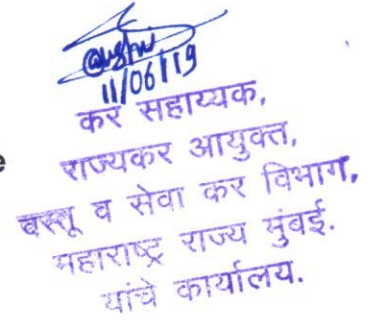 11/06/19
कर सहाय्यक,
राज्यकर आयुक्त,
वस्तू व सेवा कर विभाग,
महाराष्ट्र राज्य मुंबई.
यांचे कार्यालय.